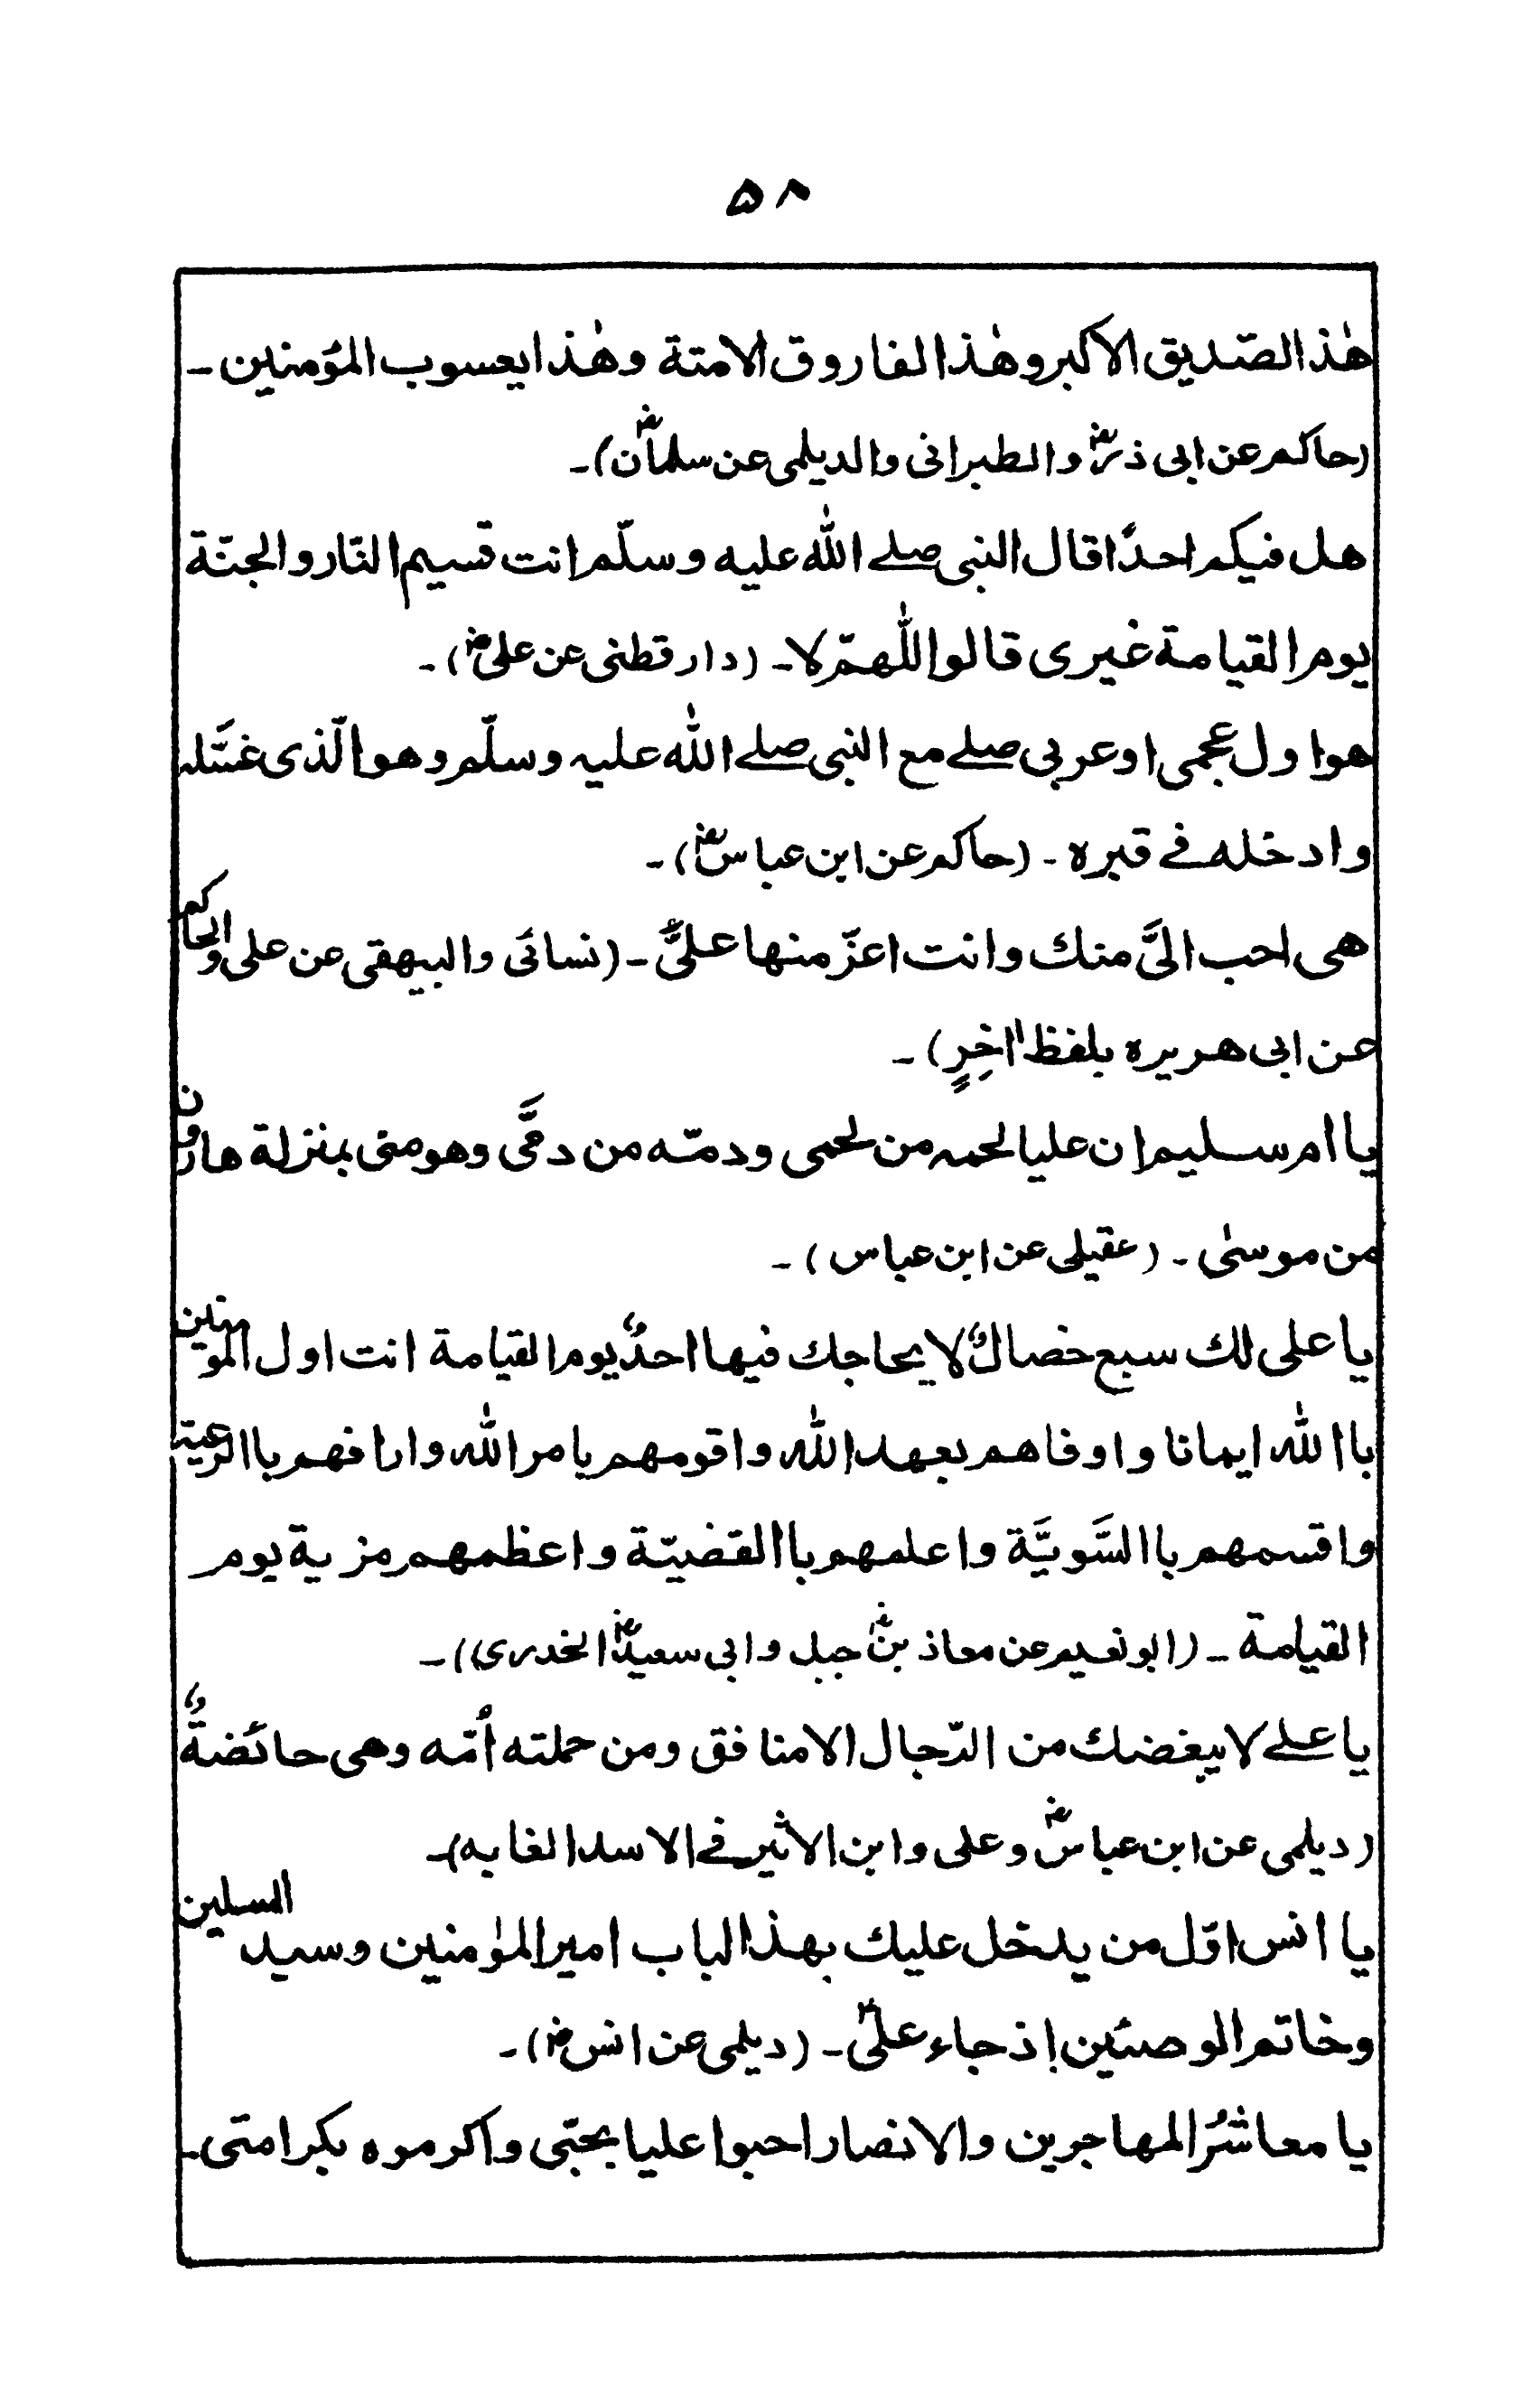 ۵۸
هٰذا الصّديق الاكبر وهٰذا الفاروق الامتة وهٰذا يعسوب المؤمنين ـ
(حاكم عن ابى ذرؓ والطبرانى والديلمى عن سلمانؓ) ـ
هل فيكم احدًا قال النبى صلے الله عليه وسلّم انت قسيم النّار والجنّة
يوم القيامة غيرى قالوا اللّٰهمّ لا ـ (دار قطنى عن علىؓ) ـ
هو اول عجمى او عربى صلے مع النبى صلے الله عليہ وسلّم وهو الّذى غسّله
وادخله فے قبره ـ (حاكم عن ابن عباسؓ) ـ
هى احب الىَّ منك وانت اعزّ منها علىَّ ـ (نسائى والبيهقى عن على والحاكم
عن ابى هريره بلفظ اٰخِرٍ) ـ
يا ام سليم ان عليا لحمه من لحمى ودمّه من دمَّى وهو منى بمنزلة هارون
من موسىٰ ـ (عقيلى عن ابن عباس) ـ
يا على لك سبع خصالٌ لا يحاجك فيها احدٌ يوم القيامة انت اول المومنين
باالله ايمانا واوفاهم بعهد الله واقومهم بامر الله وارافهم باالرعية
واقسمهم باالسَّويَّة واعلمهم باالقضيّة واعظمهم مزية يوم
القيامة ـ (ابو نعيم عن معاذ بنؓ جبل وابى سعيدؓ الخدرى)) ـ
يا علے لا يبغضك من الرّجال الا منافق ومن حملته اُمّه وهى حائضةٌ
(ديلمى عن ابن عباسؓ وعلى وابن الاثير فے الاسد الغابه) ـ
يا انس اوّل من يدخل عليك بهذا الباب امير المؤمنين وسيد المسلين
وخاتم الوصئين اذ جاء علىؓ ـ (ديلمى عن انسؓ) ـ
يا معاشرُ المهاجرين والانصار احبوا عليا بحبّى واكرموه بكرامتى ـ